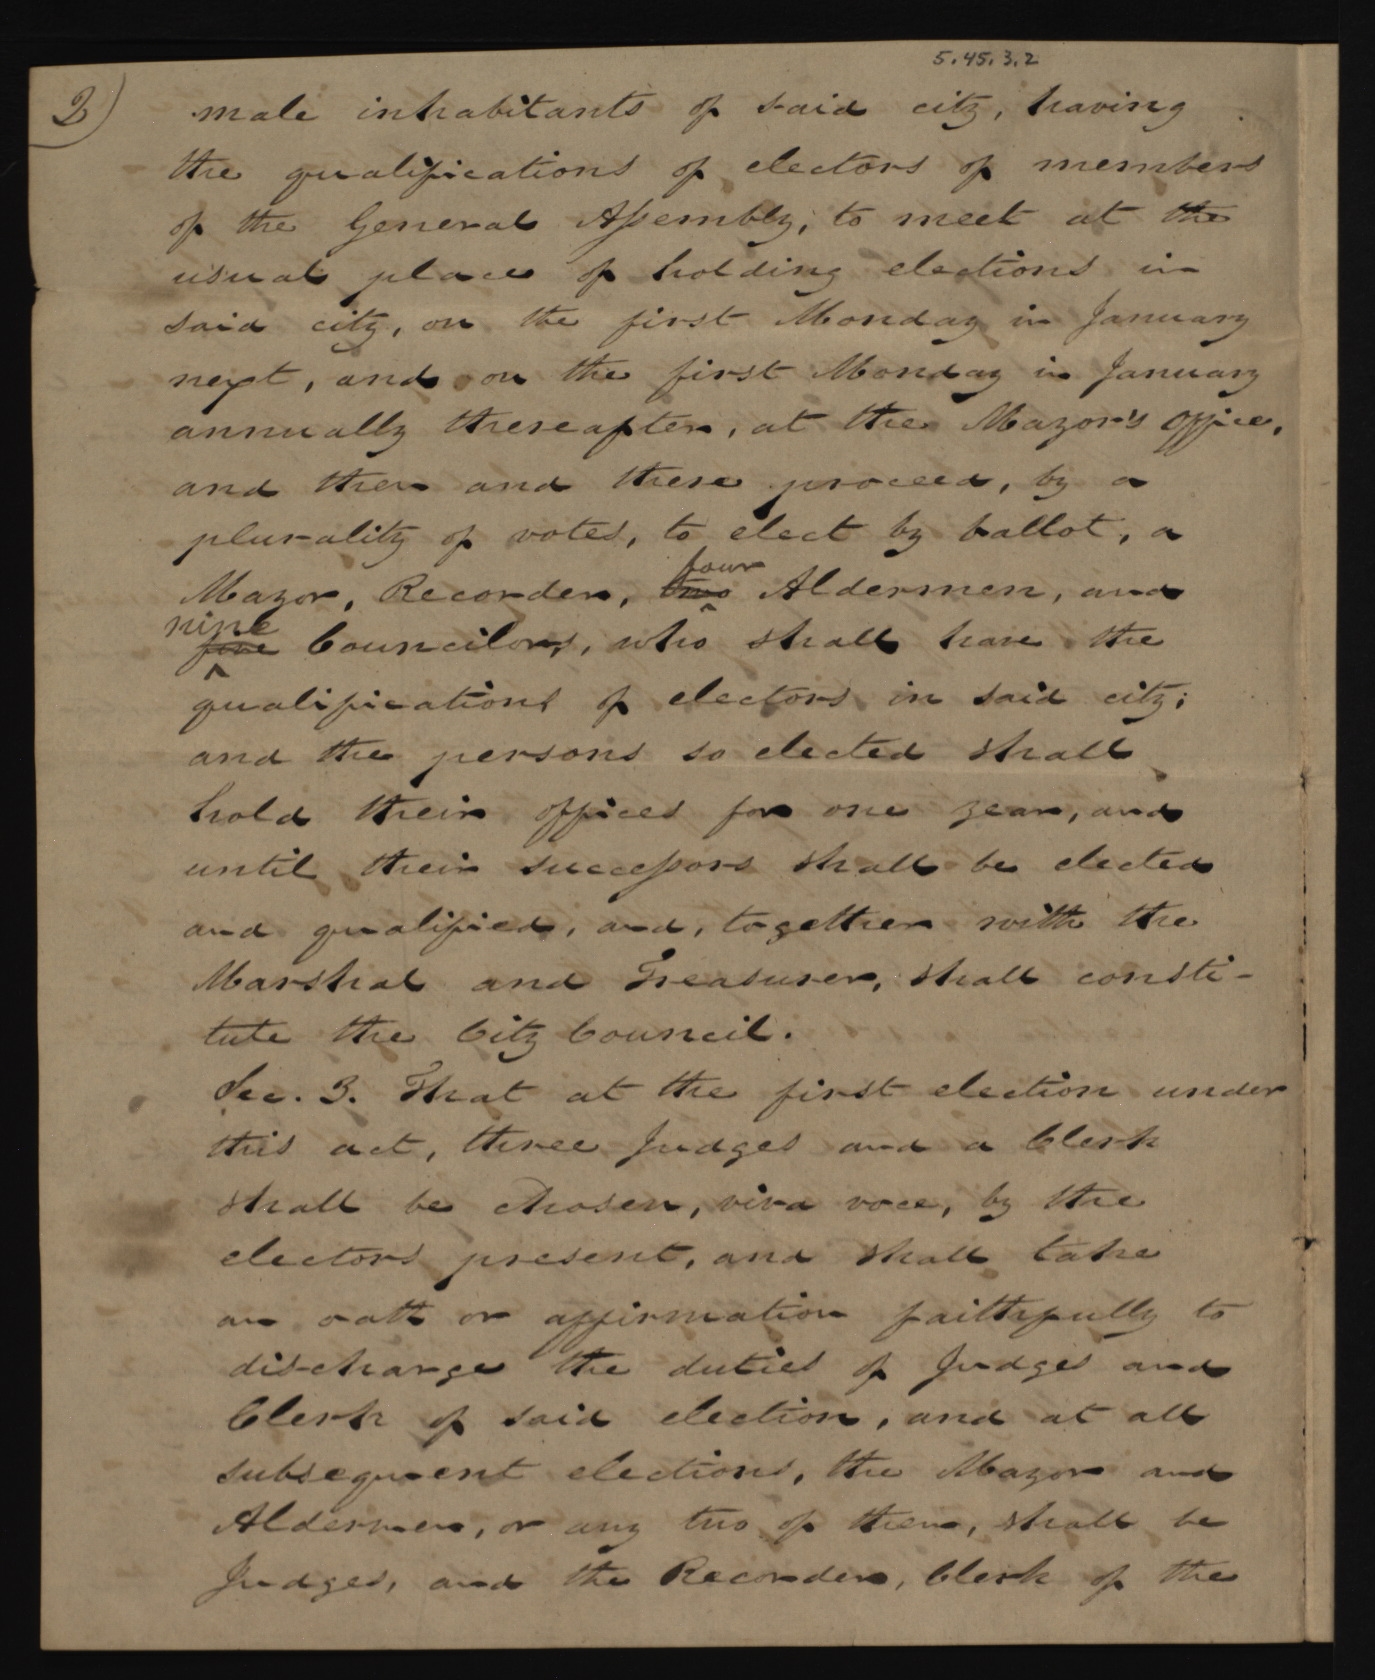 5.45.3.2
2)
male inhabitants of said city, having
the qualifications of electors of members
of the General Assembly, to meet at the
usual place of holding elections in
said city, on the first Monday in January
next, and on the first Monday in January
annually thereafter, at the Mayor's office,
and then and there proceed, by a
plurality of votes, to elect by ballot, a
four
Mayor, Recorder, two Aldermen, and
nine
five Councilors, who shall have the
qualifications of electors in said city;
and the persons so elected shall
hold their offices for one year, and
until their successors shall be elected
and qualified, and, together with the
Marshal and Treasurer, shall consti-
tute the City Council.
Sec. 3. That at the first election under
this act, three Judges and a Clerk
shall be chosen, viva voce, by the
electors present, and shall take
an oath or affirmation faithfully to
discharge the duties of Judges and
Clerk of said election, and at all
subsequent elections, the Mayor and
Aldermen, or any two of them, shall be
Judges, and the Recorder, Clerk of the